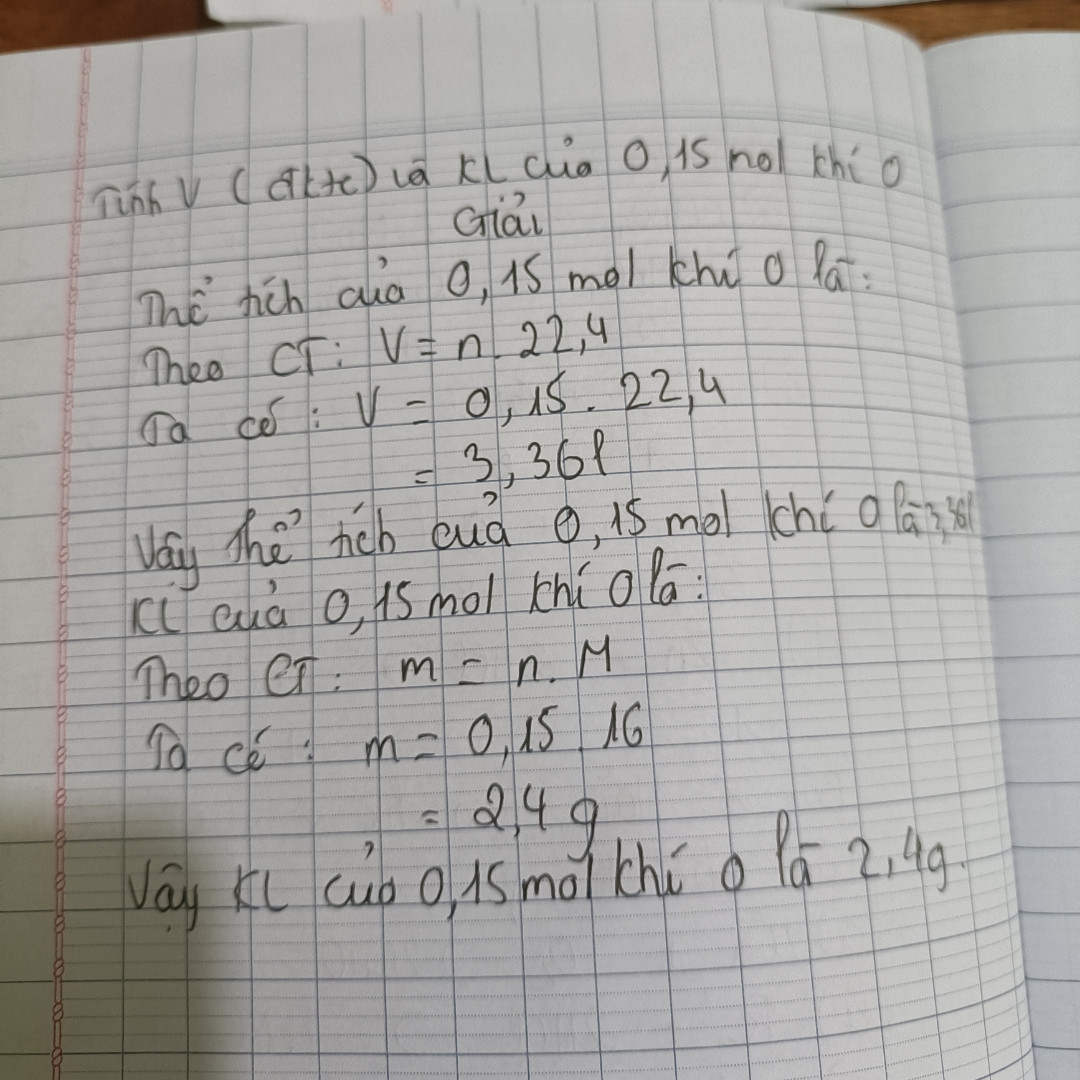 Tính V (đktc) và KL của 0,15 mol khí O
Giải
Thể tích của 0,15 mol khí O là:
Theo CT: V = n. 22,4
Ta có : V = 0,15 . 22,4
= 3,36l
Vậy thể tích của 0,15 mol khí O là 3,36l
KL của 0,15 mol khí O là:
Theo CT: m = n. M
Ta có : m = 0,15 . 16
= 2,4 g
Vậy KL của 0,15 mol khí O là 2,4g.